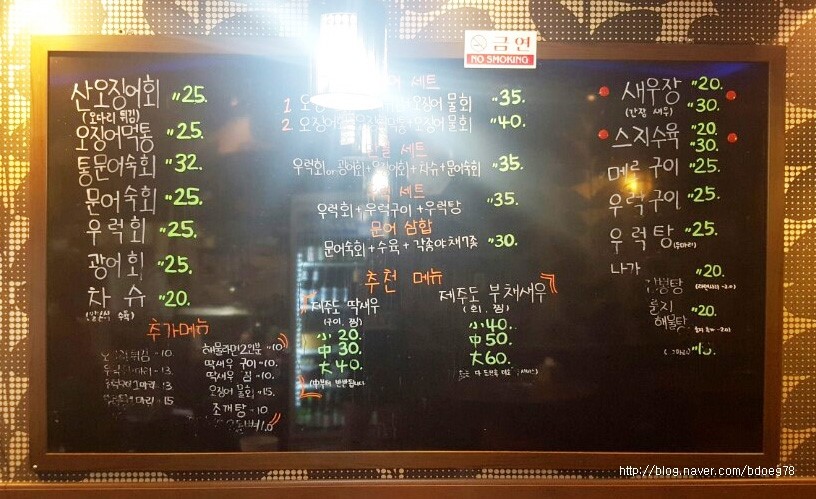 금연
NO SMOKING
산오징어회 ₩25.
(오다리 튀김)
오징어먹통 ₩25.
통문어숙회 ₩32.
문어숙회 ₩25.
우럭회 ₩25.
광어회 ₩25.
차슈 ₩20.
추가메뉴
튀김 10.
마리 13
1마리 13
마리 15
해물라면2인분 10
딱새우 구이 10.
딱새우 찜 10.
오징어 물회 15.
조개탕 10
세트
1 물회 ₩35.
2 물회 ₩40.
세트
우럭회 or 광어회 + 오징어회 + 차슈 + 문어숙회 ₩35.
세트
우럭회 + 우럭구이 + 우럭탕 ₩35.
문어 삼합
문어숙회 + 수육 + 각종야채7종 ₩30.
추천 메뉴
제주도 딱새우
(구이, 찜)
小 20.
中 30.
大 40.
(中부터 반반됩니다
제주도 부채새우
(회, 찜)
小 40.
中 50.
大 60.
새우장 ₩20.
(간장 새우) ₩30.
스지수육 ₩20.
₩30.
메로구이 ₩25.
우럭구이 ₩25.
우럭탕 ₩25.
(두마리)
나가
₩20.
해물탕 ₩20.
http://blog.naver.com/bdoeg78